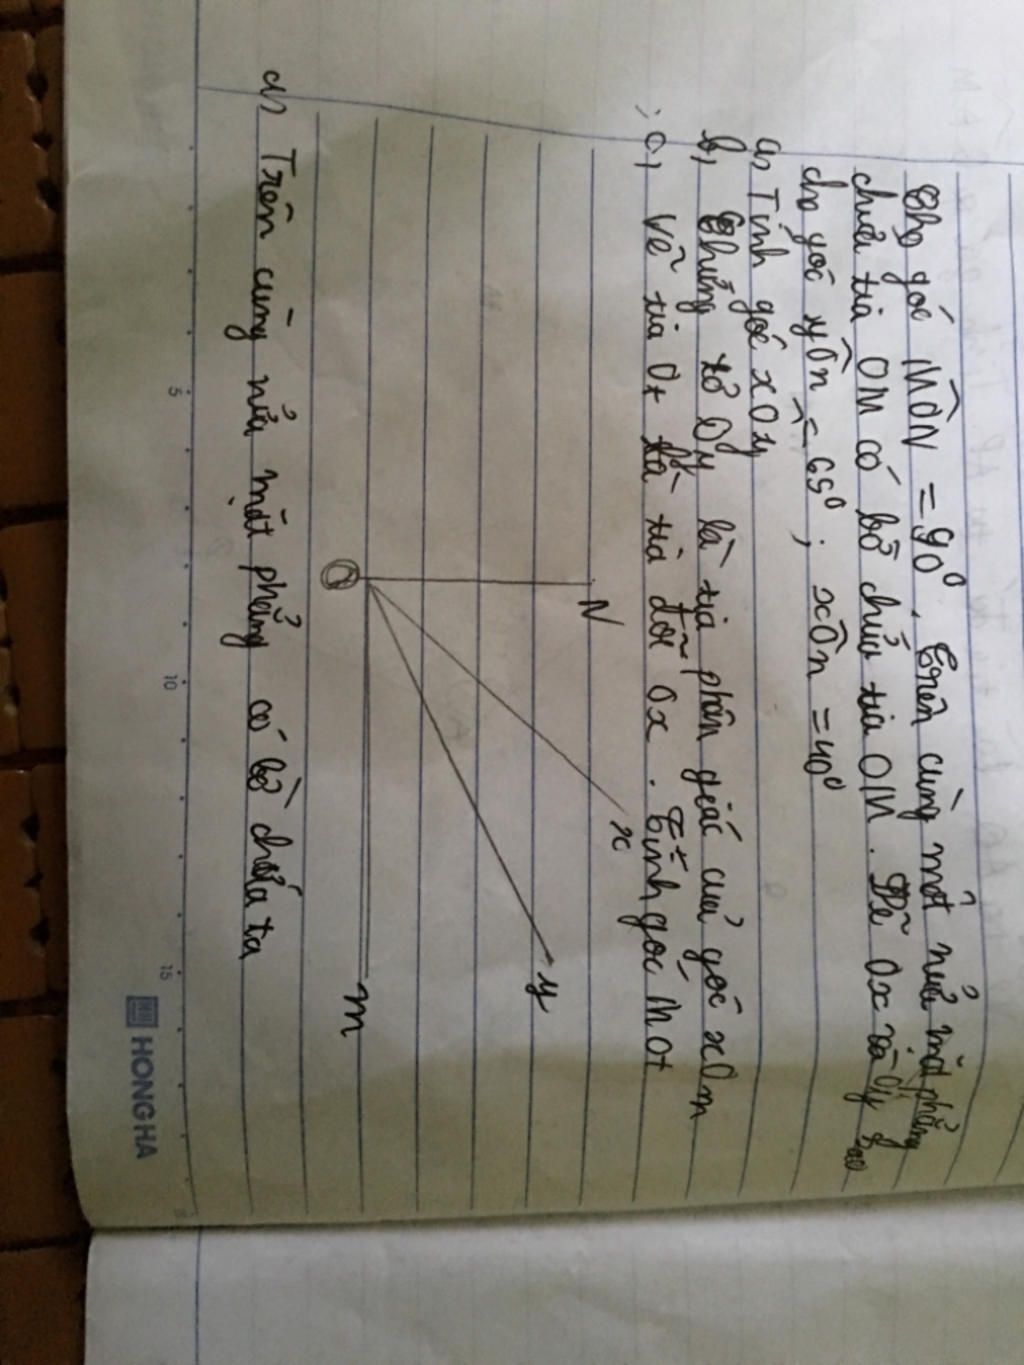 Cho góc MÔN = 90°. Trên cùng một nửa mặt phẳng
chứa tia OM có bờ chứa tia OM. Vẽ Ox và Oy sao
cho góc yÔn = 65°; xÔn = 40°
a, Tính góc xOy
b, Chứng tỏ Oy là tia phân giác của góc xOm
c, Vẽ tia Ot là tia đối Ox. Tính góc MOt
N
x
y
O
m
a, Trên cùng nửa mặt phẳng có bờ chứa ta
5
10
15
HONG HA